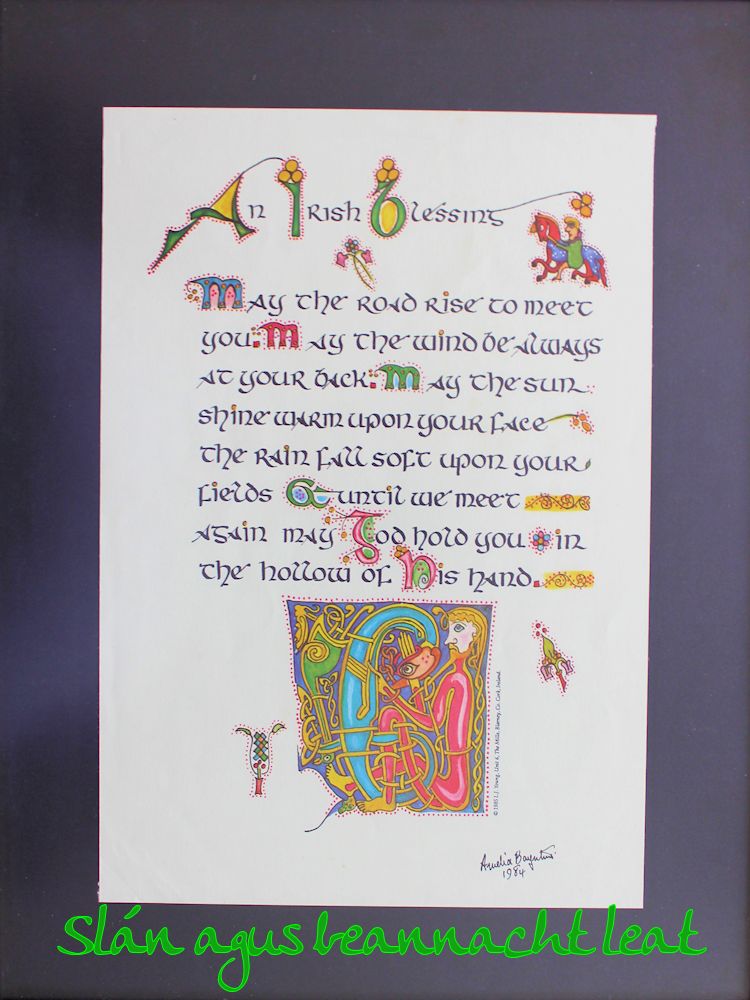 An Irish Blessing
May the road rise to meet
you. May the wind be always
at your back. May the sun
shine warm upon your face
the rain fall soft upon your
fields & until we meet
again may God hold you in
the hollow of His hand.
© 1985 L.J. Young, Unit 8, The Mills, Blarney, Co. Cork, Ireland.
Amelia
1984
Slán agus beannacht leat